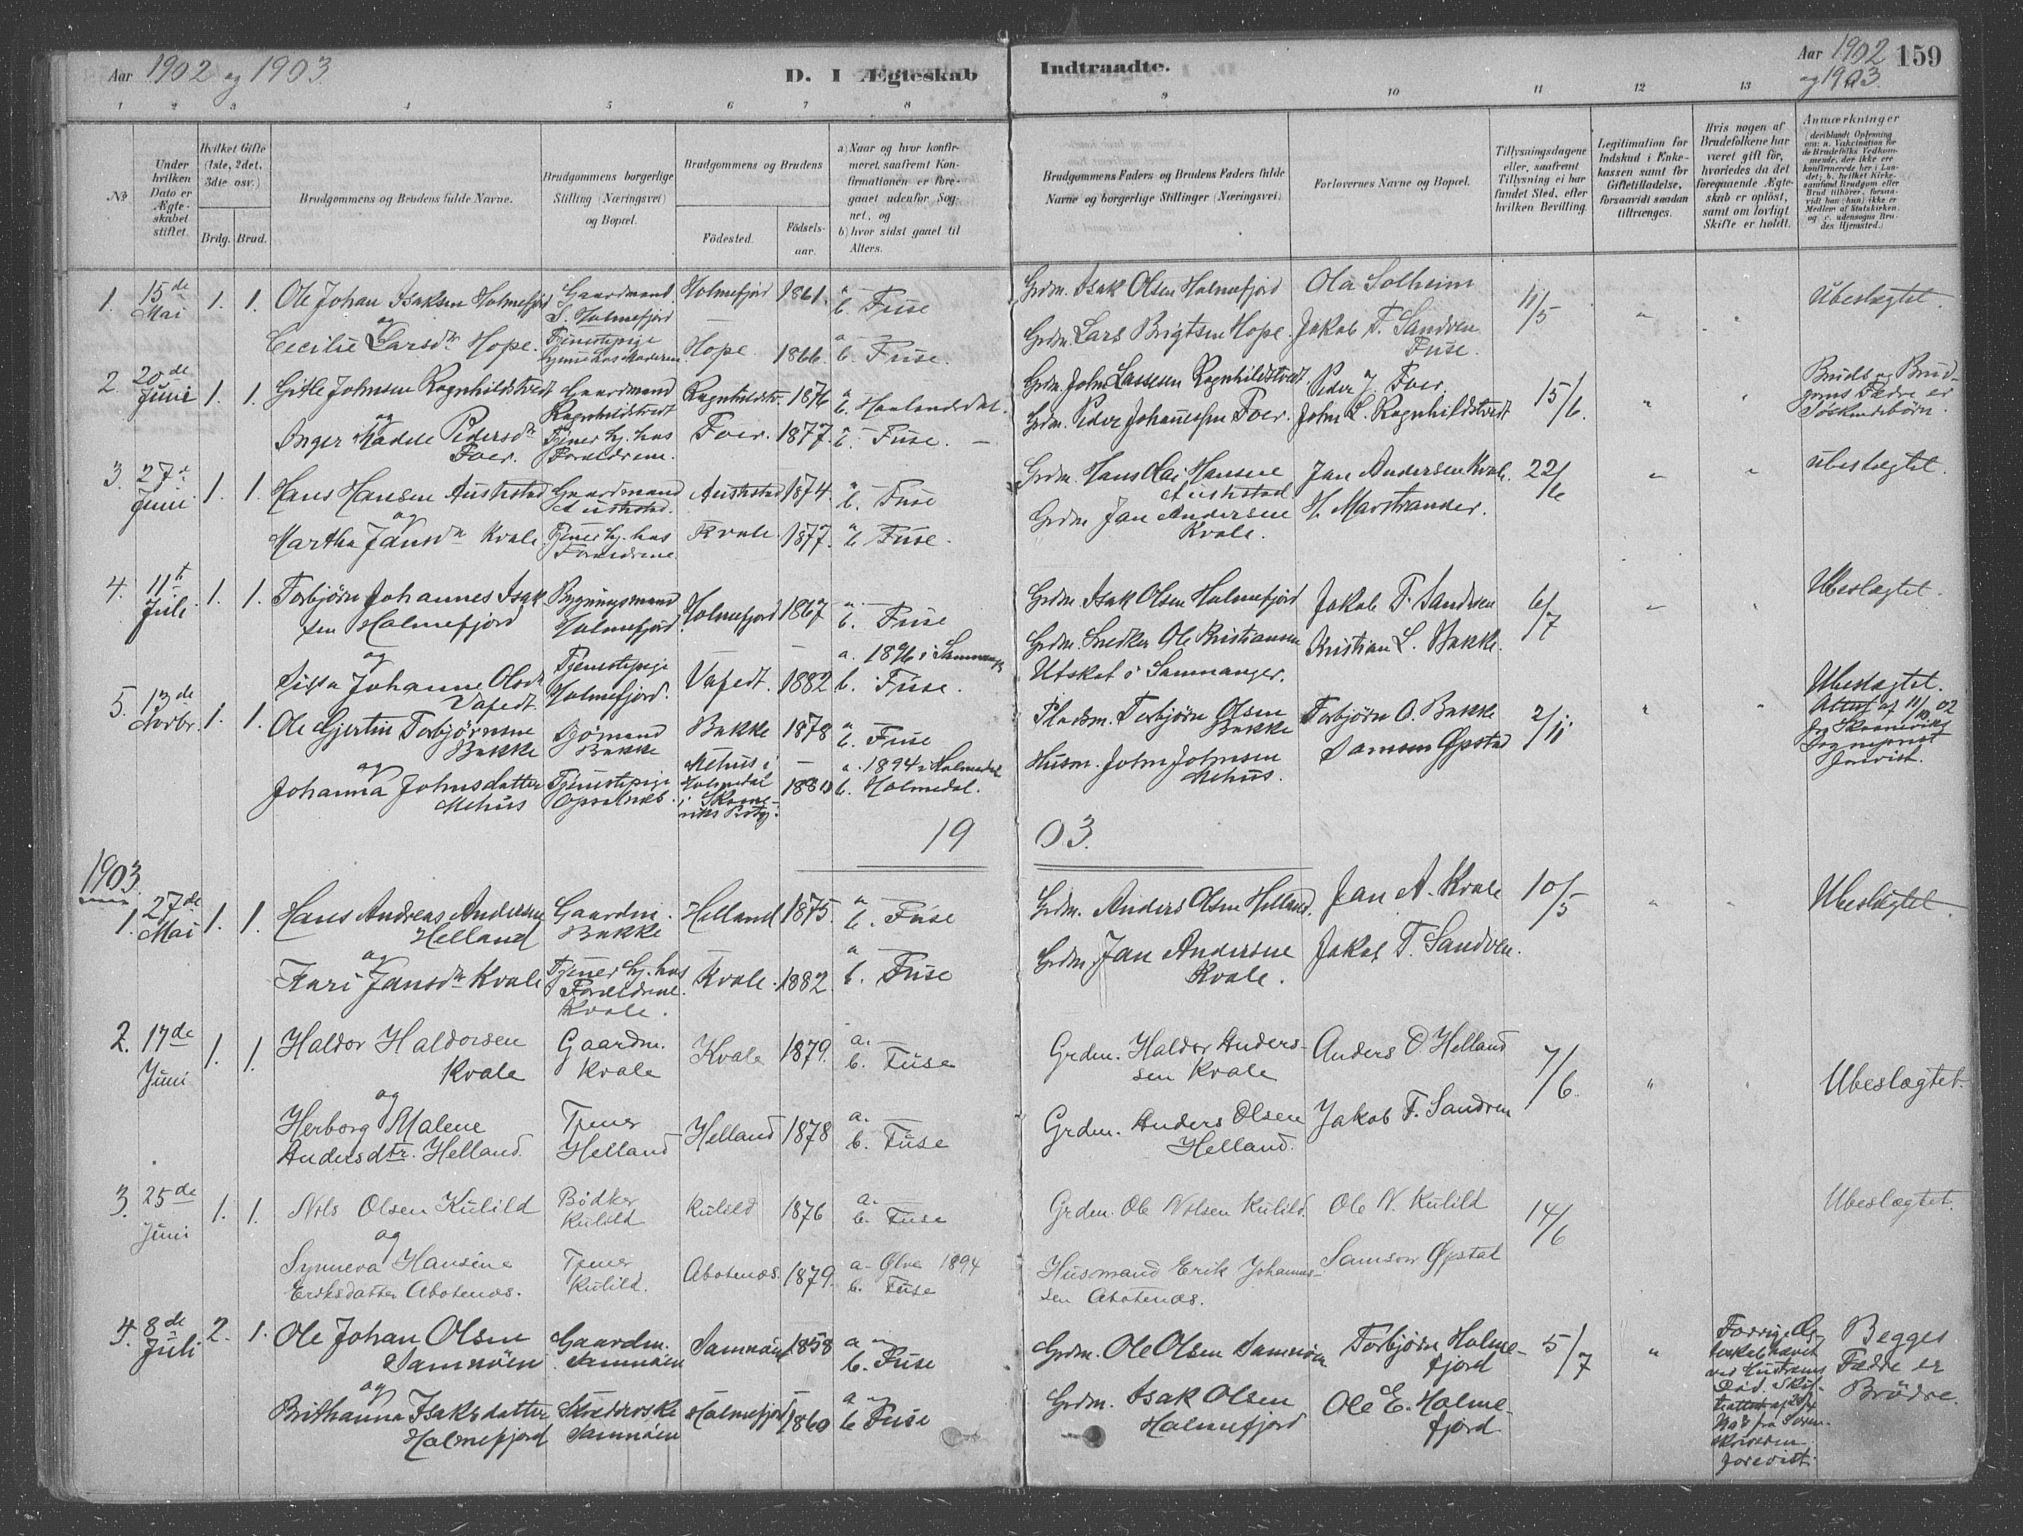 Aar 1902 og 1903
D. I Ægteskab
Indtraadte.
Aar 1902 og 1903. 159
1 2 3 4 5 6 7 8 9 10 11 12 13
No.
Under hvilken Dato er Ægteskabet stiftet.
Hvilket Gifte (1ste, 2det, 3die osv.)
Brdg. Brud.
Brudgommens og Brudens fulde Navne.
Brudgommens borgerlige Stilling (Næringsvei) og Bopæl.
Brudgommens og Brudens
Födested.
Födselsaar.
a) Naar og hvor konfirmeret, saafremt Konfirmationen er foregaaet udenfor Sognet, og
b) hvor sidst gaaet til Alters.
Brudgommens Faders og Brudens Faders fulde Navne og borgerlige Stillinger (Næringsvei)
Forlovernes Navne og Bopæl.
Tillysningsdagene eller, saafremt Tillysning ei har fundet Sted, efter hvilken Bevilling.
Legitimation for Indskud i Enkekassen samt for Giftetilladelse, forsaavidt saadan tiltrænges.
Hvis nogen af Brudefolkene har været gift för, hvorledes da det foregaaende Ægteskab er oplöst, samt om lovligt Skifte er holdt.
Anmærkninger
(deriblandt Oplysning om: a. Vakcination for de Brudefolks Vedkommende, der ikke ere konfirmerede her i Landet; b. hvilket Kirkesamfund Brudgom eller Brud tilhörer, forsaavidt han (hun) ikke er Medlem af Statskirken, og c. udensogns Brudes Hjemsted.)
1. 15de Mai 1. 1. Ole Johan Isaksen Holmefjord Gaardmand S. Holmefjord Holmefjord 1861. a. b. Fuse Grdm. Isak Olsen Holmefjord Ola Solheim 11/5 " " Ubeslægtet.
og
Cecilie Larsdtr Hope. Tjenestepige hjemme hos Moderen Hope 1866. a. b. Fuse. Grdm. Lars Brigtsen Hope. Jakob T. Sandven Fuse.
2. 20de Juni 1. 1. Gitle Johnsen Ragnhildstvedt Gaardmand Ragnhildstvedt Ragnhildstv. 1876 a. b. Haalandsdal. Grdm. John Lassesen Ragnhildstvedt Peder J. Foer. 15/6. " " Buds og Brudgoms Fædre er Söskendebörn.
og
Anger Madele Pedersdtr Foer. Tjener hj. hos Forældrene. Foer. 1877. a. b. Fuse. Grdm. Peder Johannessen Foer. John L. Ragnhildstvedt
3. 27de Juni 1. 1. Hans Hansen Austestad Gaardmand Austestad. Austestad 1874. a. b. Fuse Grdm. Hans Olai Hansen Austestad. Jan Andersen Kvale. 22/6 " " ubeslægtet.
og
Martha Jansdtr Kvale. Tjener hj. hos Forældrene Kvale. 1877. a. b. Fuse. Grdm. Jan Andersen Kvale. H. Marstrander.
4. 11te Juli. 1. 1. Torbjörn Johannes Isaksen Holmefjord Bygningsmand Holmefjord. Holmefjord 1867 a. b. Fuse Grdm. Isak Olsen Holmefjord Jakob T. Sandven 6/7 Ubeslægtet
og
Sigta Johanne Olsdtr Vafedt. Tjenestepige Holmefjord. Vafedt. 1882 a. 1896 i Samnanger b. Fuse. Grdm. Snedker Ole Kristiansen Utskot i Samnanger. Kristian L. Bakke.
5. 13de Novbr. 1. 1. Ole Gjertin Torbjörnsen Bakke Sjömand Bakke Bakke 1878 a. b. Fuse Pladsm. Torbjörn Olsen Bakke Torbjörn O. Bakke 2/11 " " Ubeslægtet. Attest af 11/10 02 fra Skaneviks Sogneprest forevist.
og
Johanna Johnsdatter Mehus Tjenestepige Opsalnæs. Mehus i Holmedal i Skaneviks Prstgj. 1880 a. 1894 i Holmedal b. Holmedal. Husm. John Johnsen Mehus. Samson Øpstad
1903.
1903.
1. 27de Mai 1. 1. Hans Andreas Andersen Helland Gaardm. Bakke Helland 1875. a. b. Fuse Grdm. Anders Olsen Helland. Jan A. Kvale 10/5 " " Ubeslægtet.
og
Kari Jansdtr Kvale Tjener hj. hos Forældrene Kvale. Kvale. 1882. a. b. Fuse Grdm. Jan Andersen Kvale. Jakob T. Sandven.
2. 17de Juni 1. 1. Haldor Haldorsen Kvale Gaardm. Kvale Kvale 1879. a. b. Fuse Grdm. Haldor Anderssen Kvale Anders O Helland 7/6. " Ubeslægtet.
og
Herborg Malene Andersdtr. Helland. Tjener Helland Helland 1878 a. b. Fuse Grdm. Anders Olsen Helland. Jakob T. Sandven
3. 25de Juni 1. 1. Nils Olsen Kulild Bödker Kulild Kulild 1876 a. b. Fuse Grdm. Ole Nilsen Kulild. Ole N. Kulild 14/6 Ubeslægtet.
og
Synneva Hansine Eriksdatter Abotenæs. Tjener Kulild. Abotenæs. 1879. a. Ølve 1894 b. Fuse Husmand Erik Johannessen Abotenæs. Samson Øpstad
4. 8de Juli 2. 1. Ole Johan Olsen Samnöen Gaardm. Samnöen Samnöen 1858 a. b. Fuse Grdm. Ole Olsen Samnöen Torbjörn Holmefjord 5/7 " Forrige Ægteskab hævet ved Hustruens Död. Skifteattest af 20/4 1903 fra Sorenskriveren forevist. Begges Fædre er Brödre.
og
Brithanna Isaksdatter Holmefjord Samnöen Holmefjord 1860 a. b. Fuse Grdm. Isak Olsen Holmefjord Ole E. Holmefjord